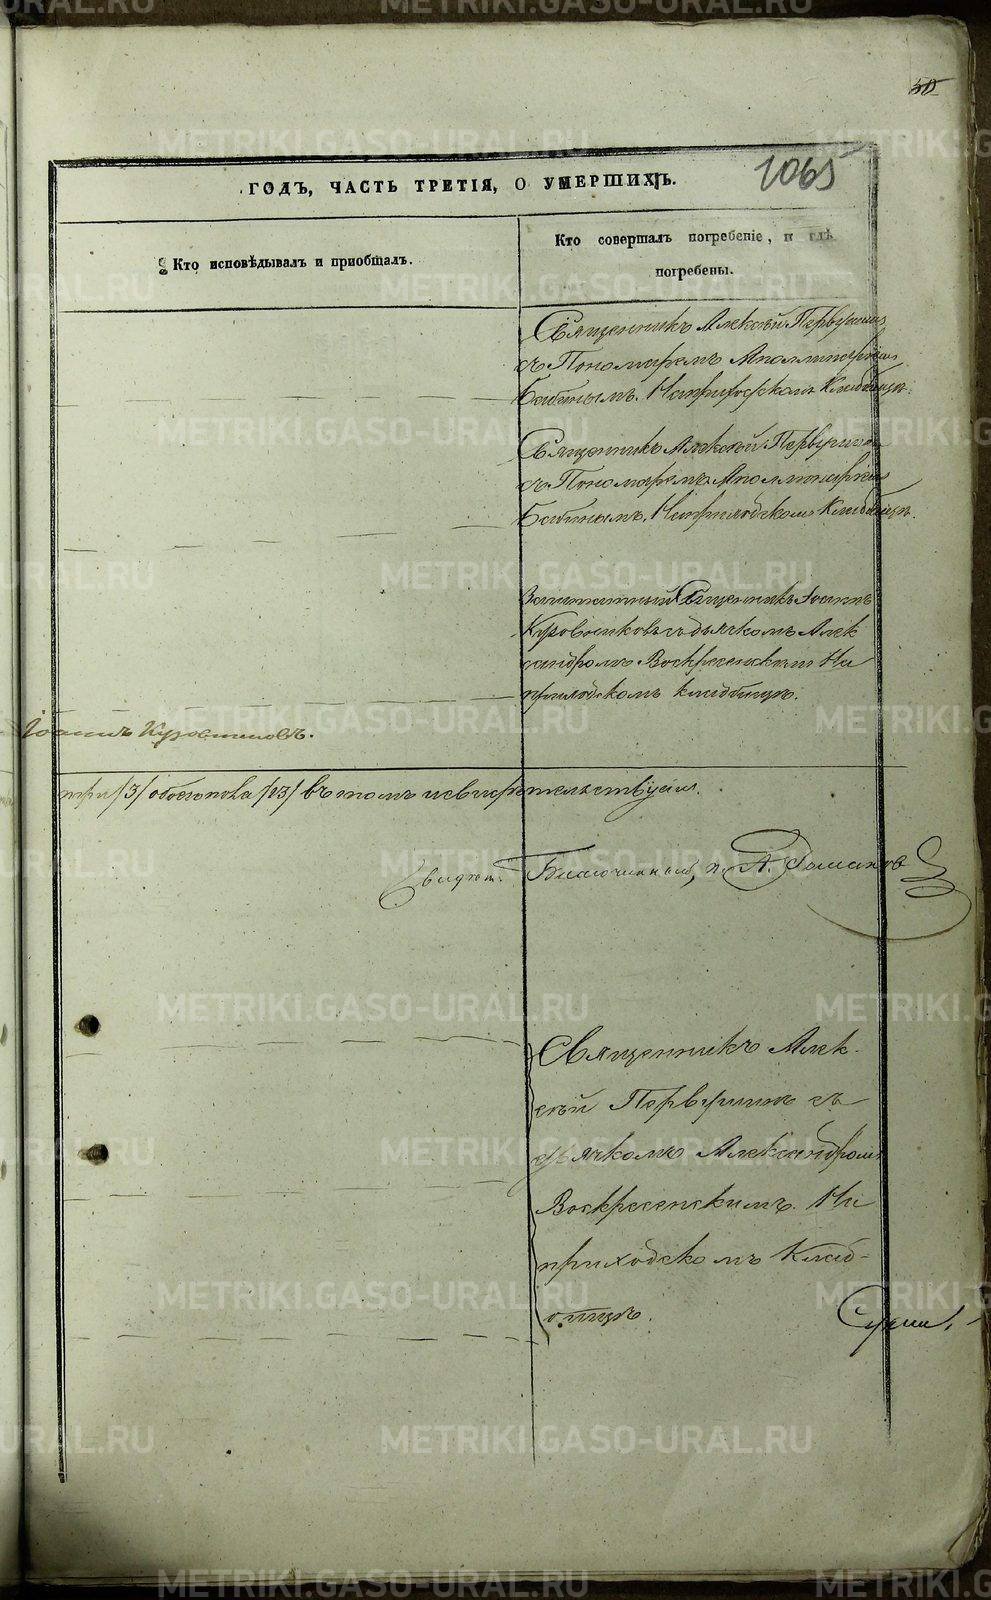 50
1065
ГОДЪ, ЧАСТЬ ТРЕТІЯ, О УМЕРШИХЪ.
Кто исповѣдывалъ и пріобщалъ.
Кто совершалъ погребеніе, и гдѣ
погребены.
Священникъ Алексѣй Первушинъ
съ Пономаремъ Аполлинаріемъ
Бабинымъ. На приходскомъ Кладбищѣ.
Священникъ Алексѣй Первушинъ
съ Пономаремъ Аполлинаріемъ
Бабинымъ. На приходскомъ Кладбищѣ.
Заштатный Священникъ Іоаннъ
съ дьячкомъ Алек
сандромъ Воскресенскимъ На
приходскомъ кладбищѣ.
Іоаннъ
три /3/ обоего пола /13/ въ томъ и свидѣтельствуемъ.
Благочинный, А. Романовъ
Священникъ Алек-
сѣй Первушинъ съ
дьячкомъ Александромъ
Воскресенскимъ. На
приходскомъ Клад-
бищѣ.
METRIKI.GASO-URAL.RU